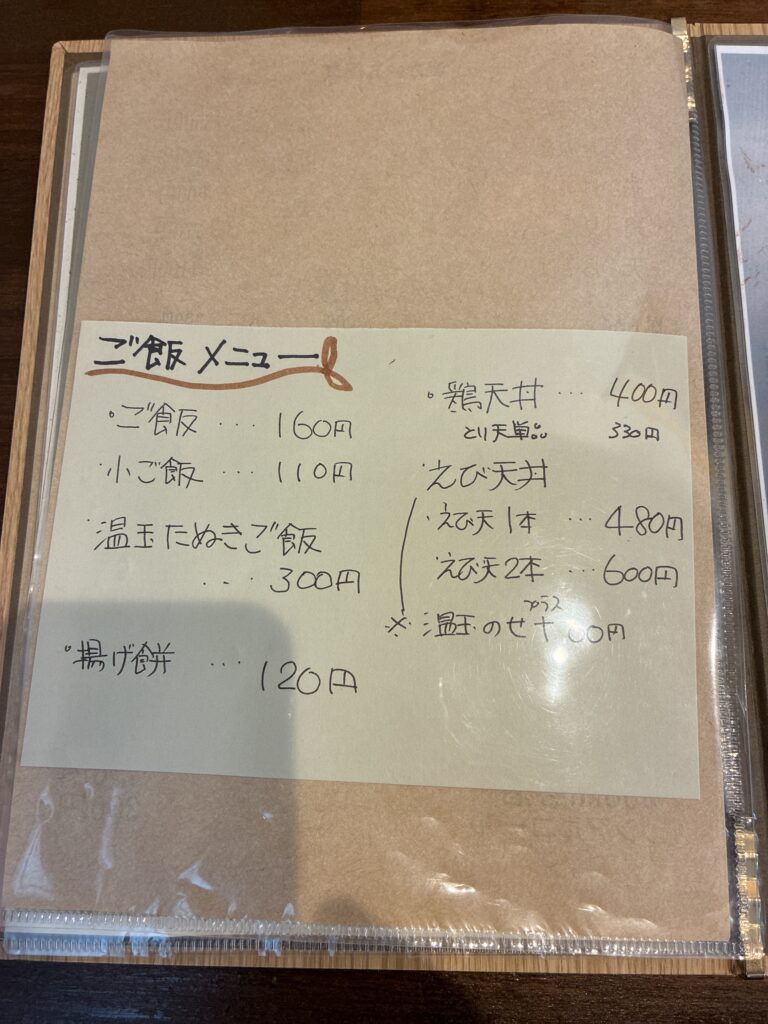 ご飯 メニュー
・ご飯 … 160円
小ご飯 … 110円
・温玉たぬきご飯
… 300円
・揚げ餅 … 120円
・鶏天丼 … 400円
とり天単品 330円
えび天丼
・えび天1本 … 480円
えび天2本 … 600円
プラス
※温玉のせ+